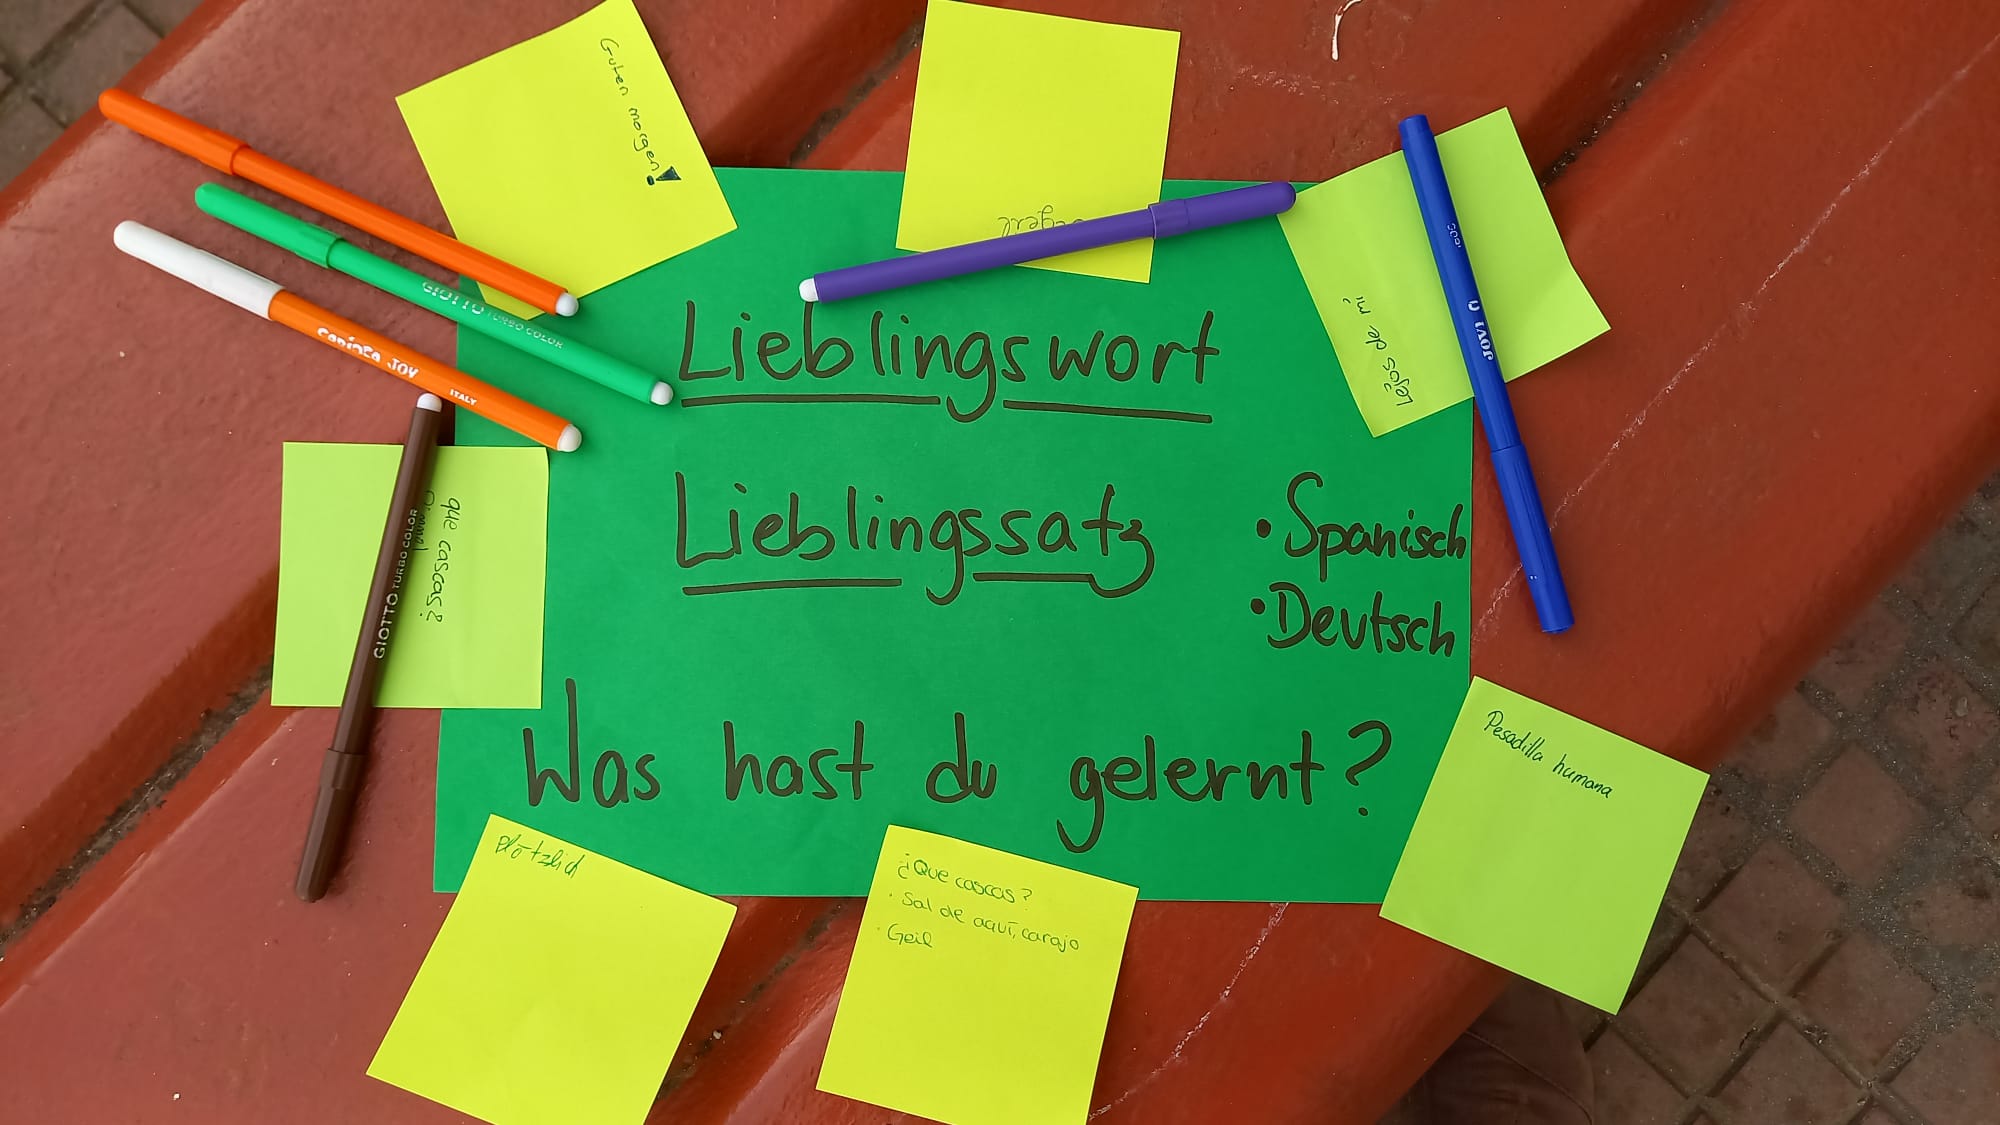 Guten morgen!
Lejos de mi
GIOTTO TURBO COLOR
CARIOCA JOY
ITALY
JOVI
Lieblingswort
Lieblingssatz
• Spanisch
• Deutsch
que cascas?
GIOTTO TURBO COLOR
Was hast du gelernt?
Pesadilla humana
Plötzlich
¿Que cascas?
· Sal de aquí, carajo
· Geil